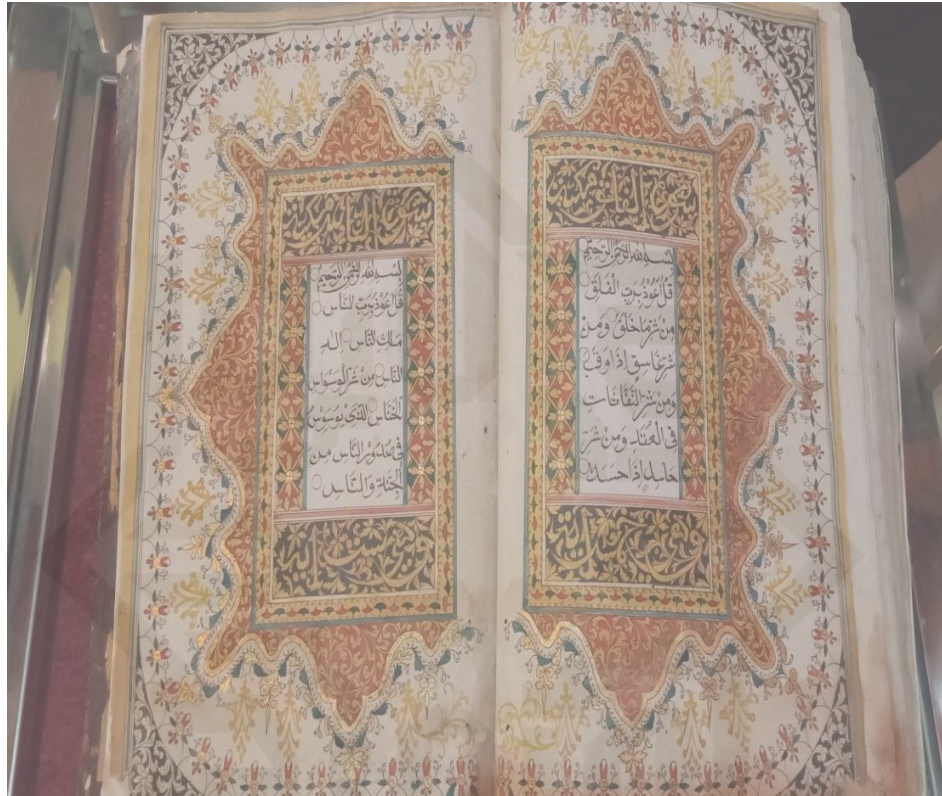 سورة الفلق
بسم الله الرحمن الرحيم
قل اعوذ برب الفلق
من شر ما خلق ومن
شر غاسق اذا وقب
ومن شر النفاثات
في العقد ومن شر
حاسد اذا حسد
وهي خمس
سورة الناس مدنية
بسم الله الرحمن الرحيم
قل اعوذ برب الناس
ملك الناس اله
الناس من شر الوسواس
الخناس الذي يوسوس
في صدور الناس من
الجنة والناس
وهي ست اية